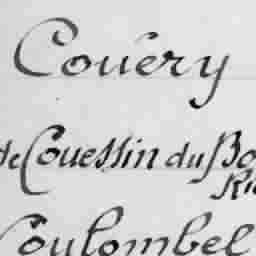 Couëry
de Couessin du Bo
Ric
Coulombel